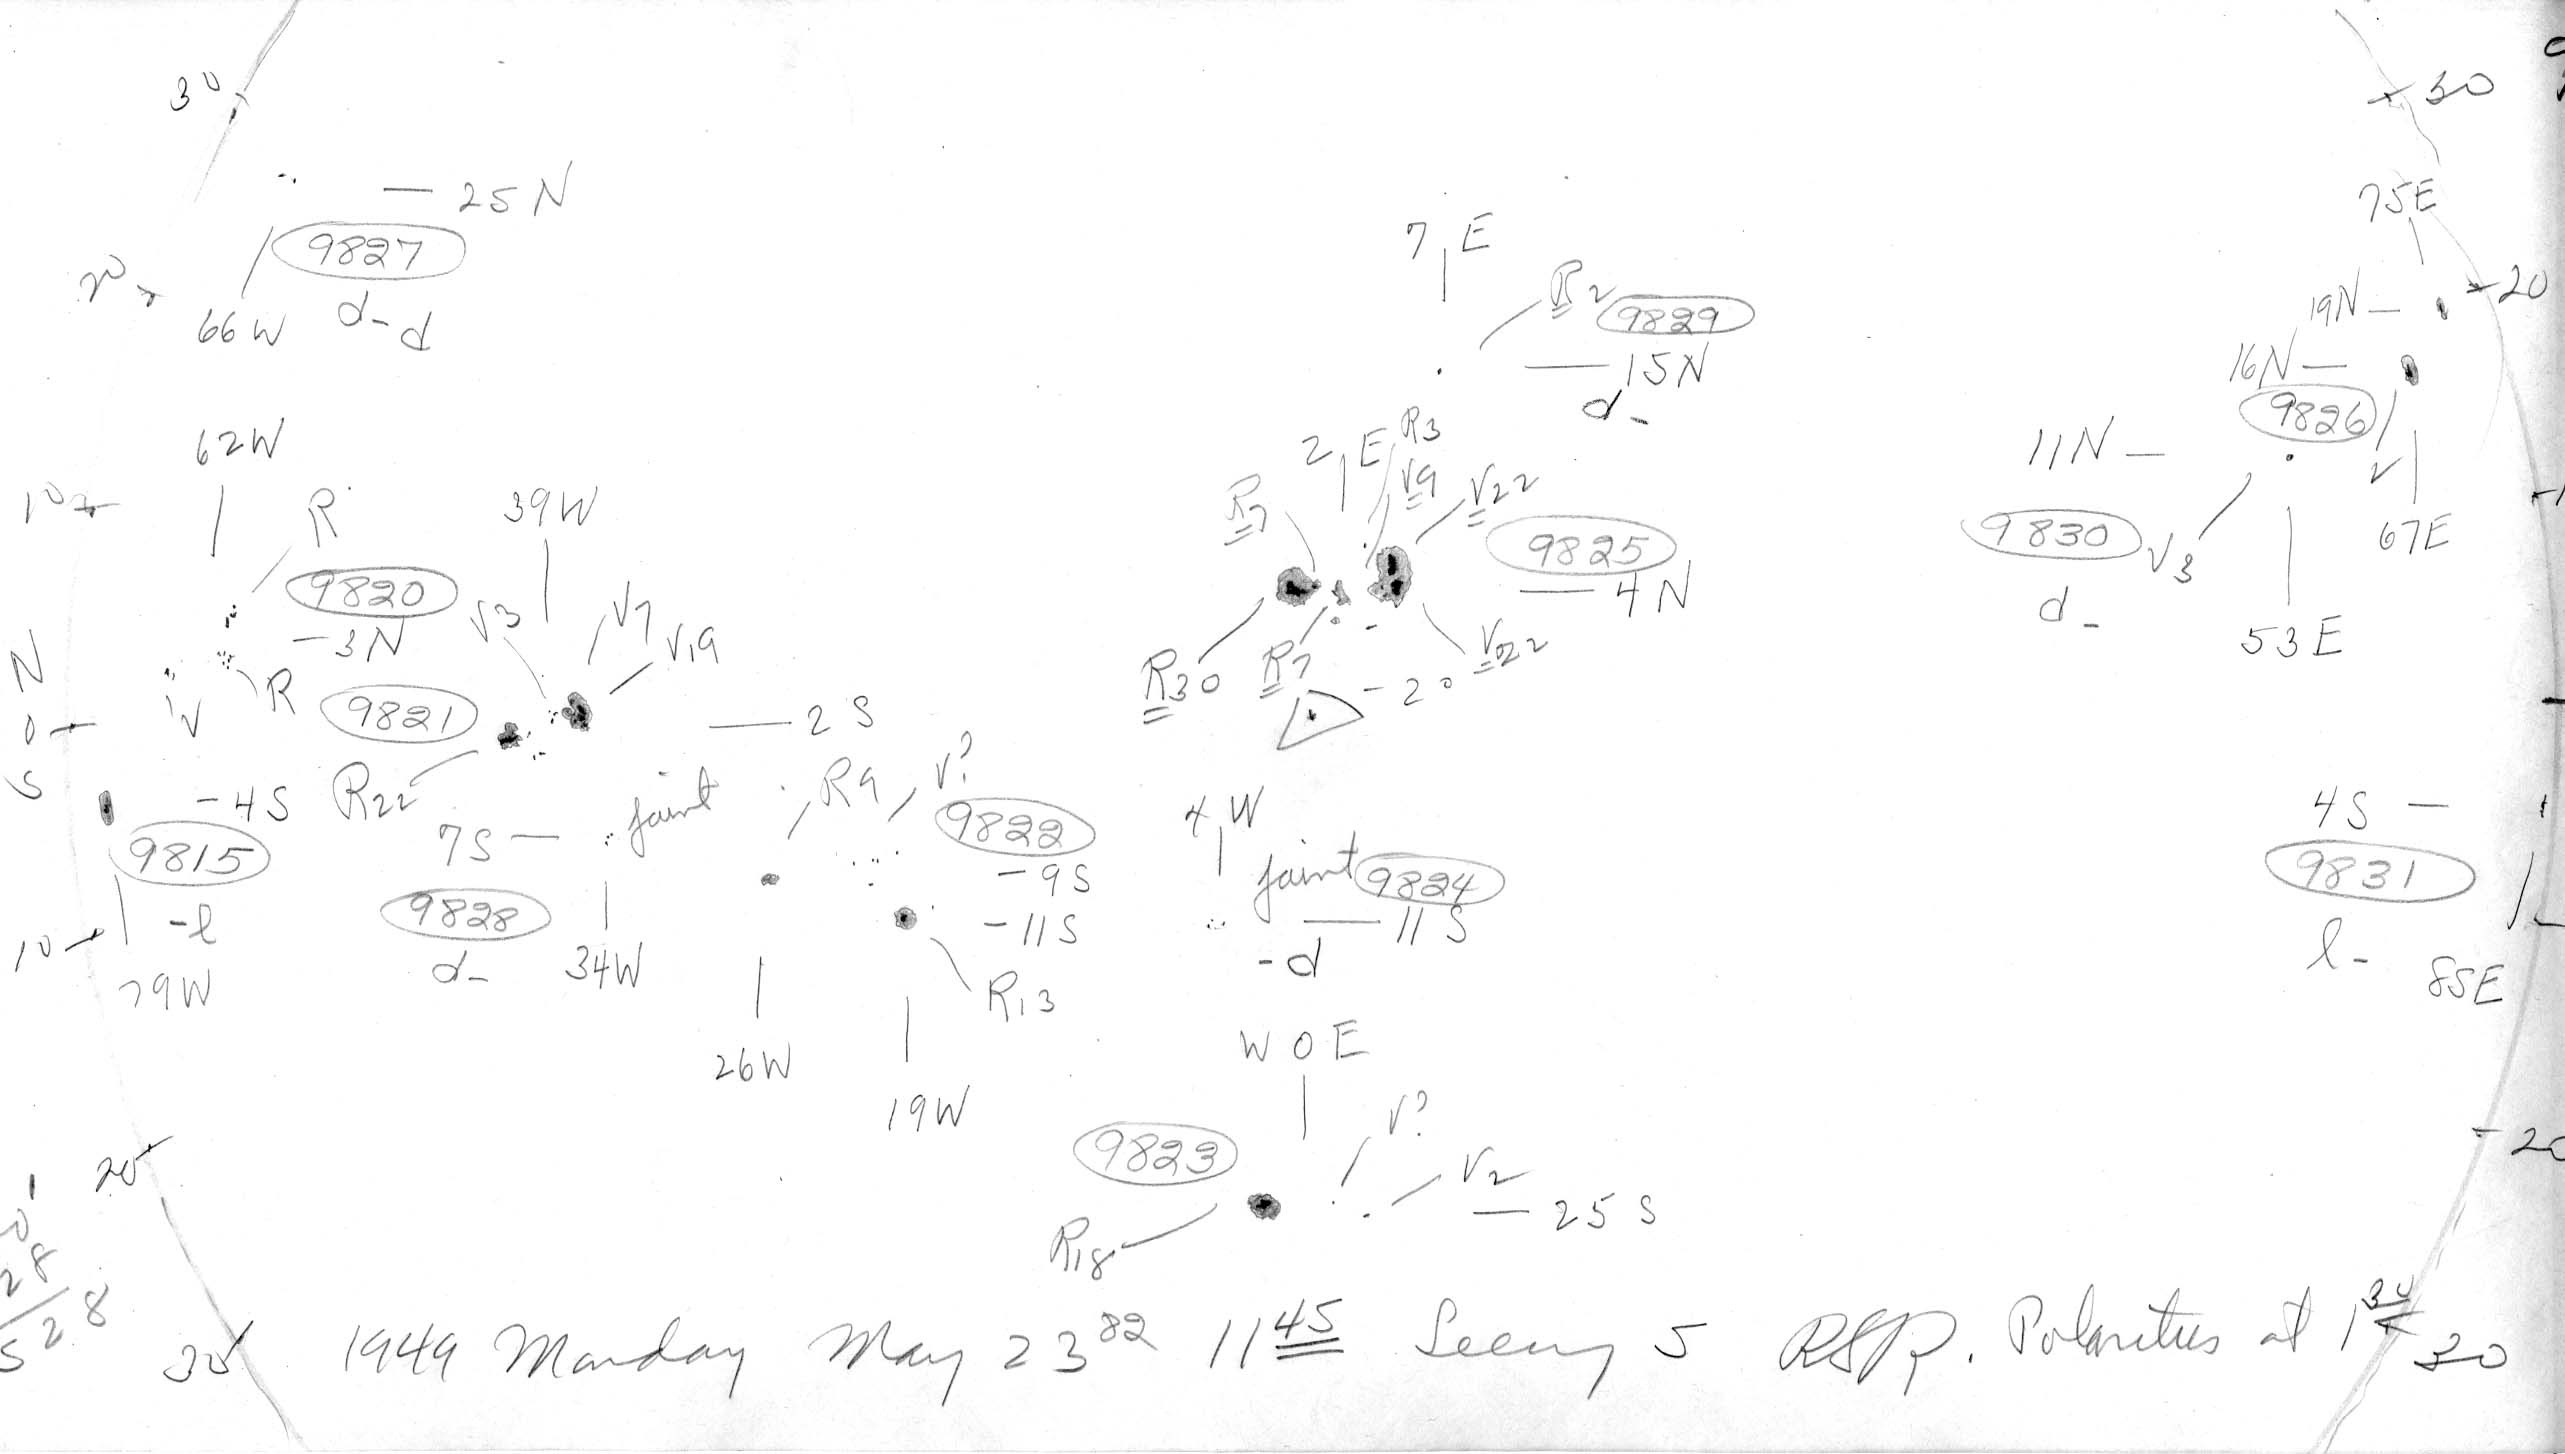 30
30
25N
9827
66W
d-d
7 E
R2
9829
15N
d-
75E
20
19N
16N
9826
V
67E
11N
9830
V3
d-
53E
62W
R
9820
-3N
R
V
39W
V3
V7
V19
9821
R22
2 S
2 E
R3
R7
V9
V22
9825
4N
V22
R30
R7
-20
N
0
S
10
-4S
9815
-l
79W
10
7S
faint
9828
d-
34W
R9
V?
9822
-9S
-11S
R13
26W
19W
4 W
faint
9824
11S
-d
4S
9831
l-
85E
W 0 E
9823
V?
V2
25 S
R18
20
20
28
528
30
1949 Monday May 23 82 11 45 Seeing 5 Polarities at 1 30
30